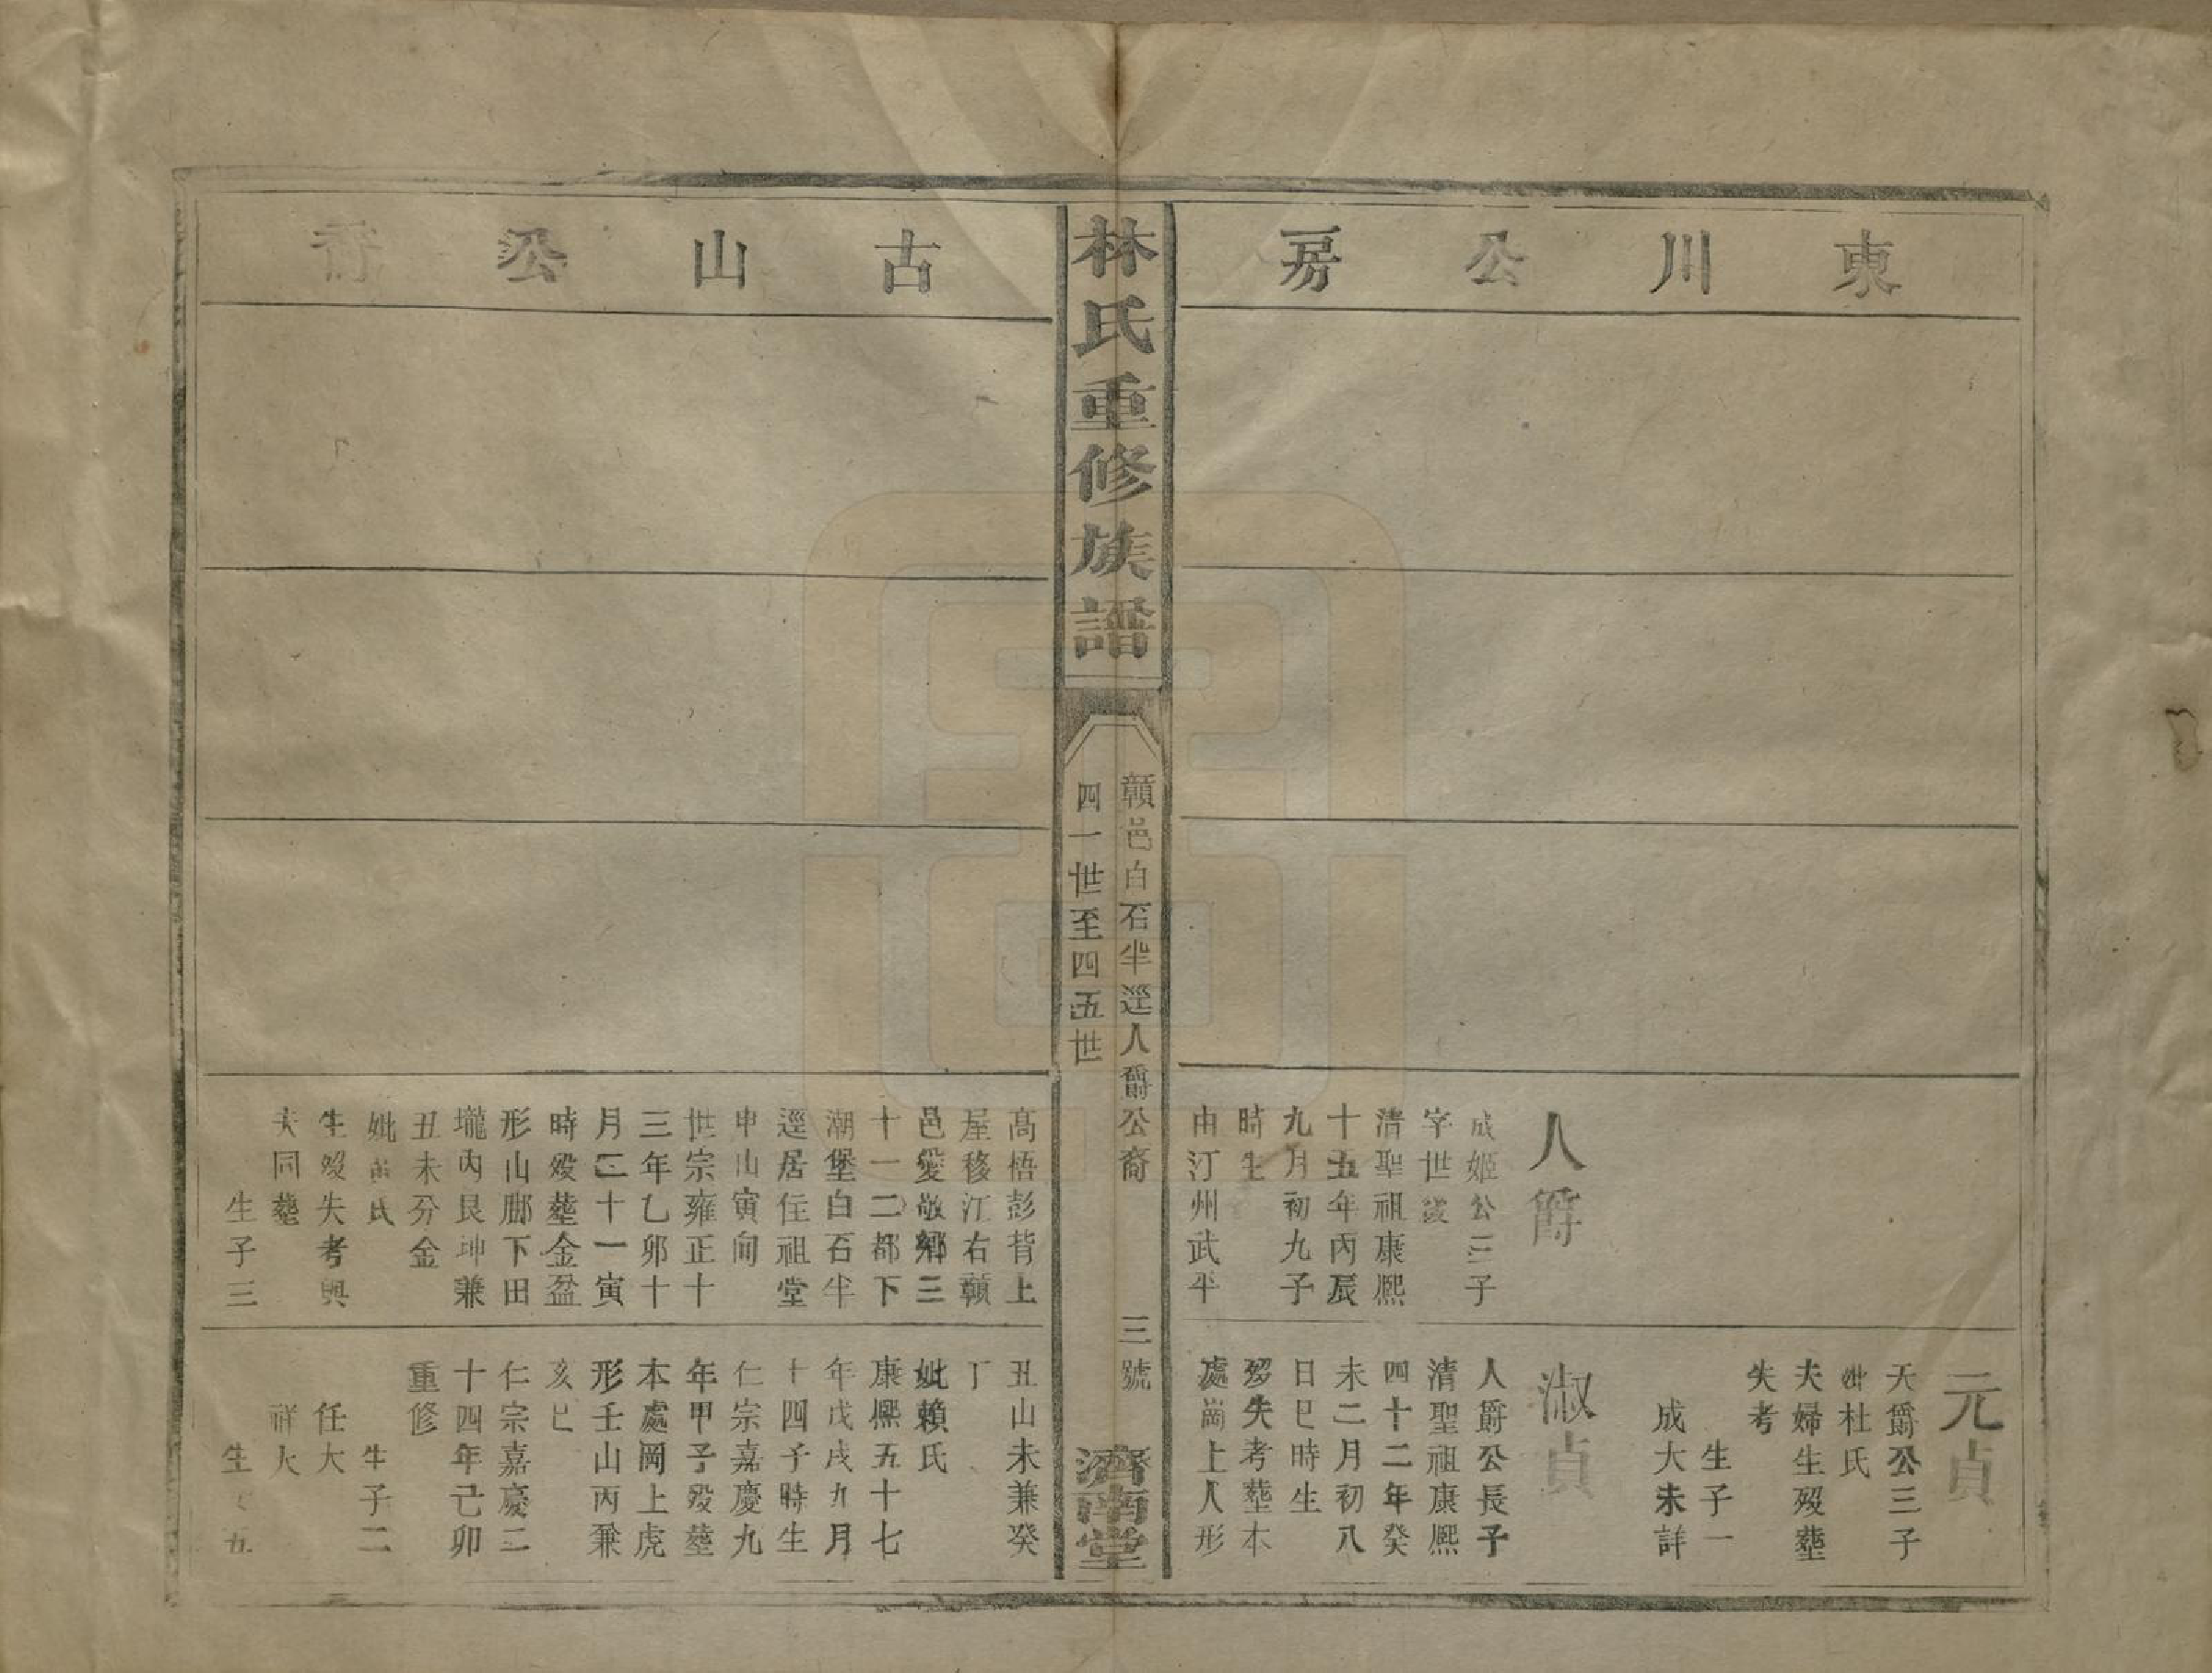 東川公房
人爵
成姬公三子
字世
清聖祖康熙
十五年丙辰
九月初九子
時生
由汀州武平
元貞
天爵公三子
妣杜氏
夫婦生殁塟
失考
生子一
成大未詳
淑貞
人爵公長子
清聖祖康熙
四十二年癸
未二月初八
日巳時生
殁失考塟本
處崗上人形
林氏重修族譜
贛邑白石坐逕人爵公裔
四一世至四五世
三號
濟南堂
古山公
高梧彭背上
屋移江右贛
邑愛敬鄉三
十一二都下
潮堡白石坐
逕居住祖堂
申山寅向
世宗雍正十
三年乙卯十
月二十一寅
時殁塟金盆
形山脚下田
壠內艮坤兼
丑未分金
妣 氏
生殁失考與
夫同塟
生子三
丑山未兼癸
丁
妣賴氏
康熙五十七
年戊戌九月
十四子時生
仁宗嘉慶九
年甲子殁塟
本處岡上虎
形壬山丙兼
亥巳
仁宗嘉慶二
十四年己卯
重修
生子二
任大
祥大
生 五